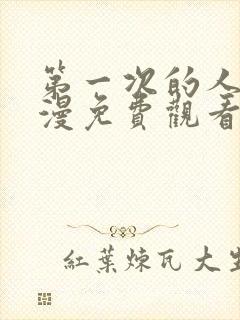 第一次的人
漫免費觀看
紅葉煉瓦大